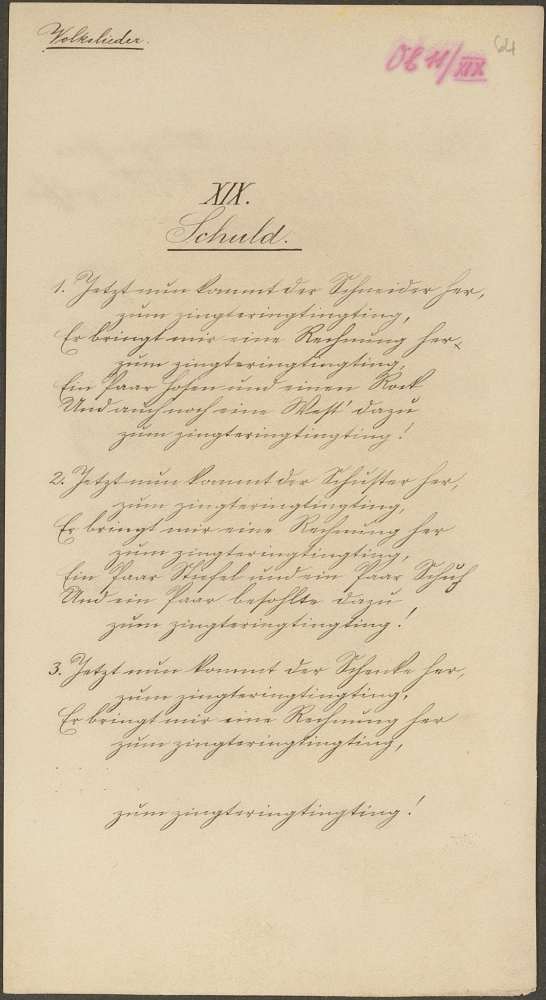 Volkslieder.
Ob 11/XIX
64
XIX.
Schuld.
1. Jetzt nun kommt der Schneider her,
zum zingteringtingting,
Er bringt mir eine Rechnung her
zum zingteringtingting,
Ein Paar Hosen und einen Rock
Und auch noch eine West' dazu
zum zingteringtingting!
2. Jetzt nun kommt der Schuster her,
zum zingteringtingting,
Er bringt mir eine Rechnung her
zum zingteringtingting,
Ein Paar Stiefel und ein Paar Schuh
Und ein Paar besohlte dazu
zum zingteringtingting!
3. Jetzt nun kommt der Schenke her,
zum zingteringtingting,
Er bringt mir eine Rechnung her
zum zingteringtingting,
zum zingteringtingting!